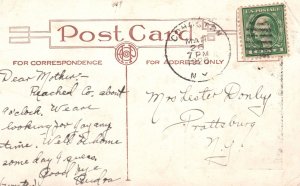 Post Card
FOR CORRESPONDENCE
FOR ADDRESS ONLY
MAR
7 PM
N.Y.
U.S. POSTAGE
Dear Mother:-
Reached Co. about
o'clock. We are
looking for you any
time. Will be home
some day I guess.
Good bye
Mrs Lester Donly
Prattsburg
N.Y.